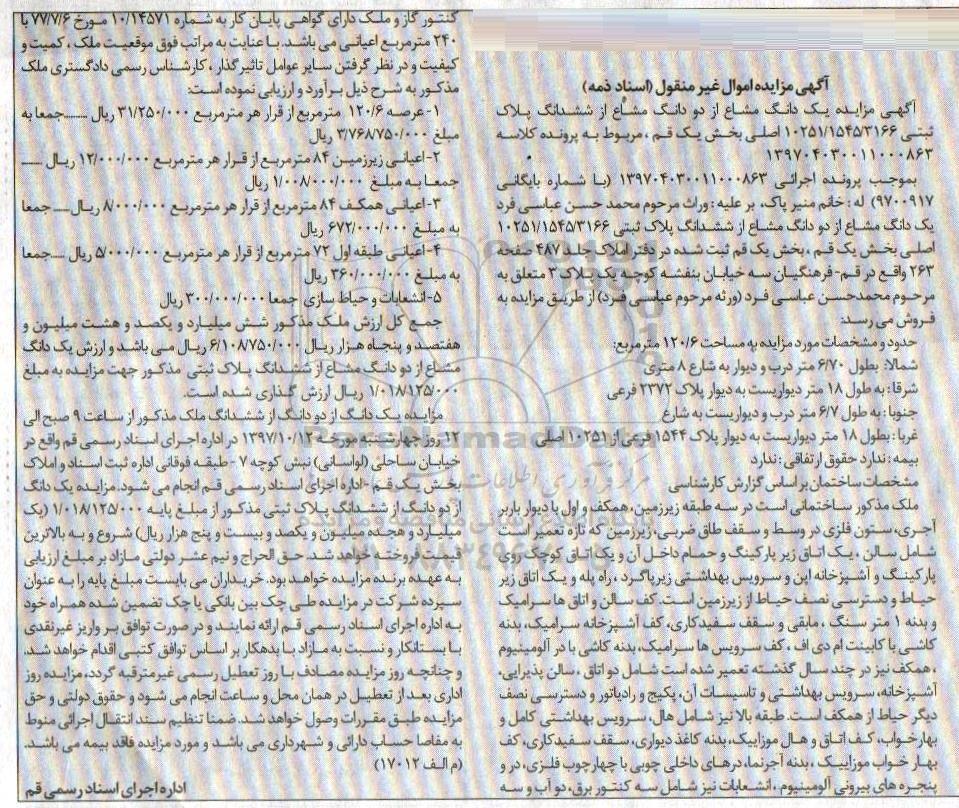 آگهی مزایده اموال غیر منقول (اسناد ذمه)
آگهی مزایده یک دانگ مشاع از دو دانگ مشاع از ششدانگ پلاک
ثبتی ۱۰۲۵۱/۱۵۴۵/۳۱۶۶ اصلی بخش یک قم ، مربوط به پرونده کلاسه
۱۳۹۷۰۴۰۳۰۰۱۱۰۰۰۸۶۳
بموجب پرونده اجرائی ۱۳۹۷۰۴۰۳۰۰۱۱۰۰۰۸۶۳ (با شماره بایگانی
۹۷۰۰۹۱۷) له : خانم منیر پاک، بر علیه : وراث مرحوم محمد حسن عباسی فرد
یک دانگ مشاع از دو دانگ مشاع از ششدانگ پلاک ثبتی ۱۰۲۵۱/۱۵۴۵/۳۱۶۶
اصلی بخش یک قم ، بخش یک قم ثبت شده در دفتر املاک جلد ۴۸۷ صفحه
۲۶۳ واقع در قم- فرهنگیان سه خیابان بنفشه کوچه یک پلاک ۳ متعلق به
مرحوم محمدحسن عباسی فرد (ورثه مرحوم عباسی فرد) از طریق مزایده به
فروش می رسد:
حدود و مشخصات مورد مزایده به مساحت ۱۲۰/۶ مترمربع:
شمالا: بطول ۶/۷۰ متر درب و دیوار به شارع ۸ متری
شرقا: به طول ۱۸ متر دیواریست به دیوار پلاک ۲۳۷۲ فرعی
جنوبا: به طول ۶/۷ متر درب و دیواریست به شارع
غربا: بطول ۱۸ متر دیواریست به دیوار پلاک ۱۵۴۴ فرعی از ۱۰۲۵۱ اصلی
بیمه : ندارد حقوق ارتفاقی : ندارد
مشخصات ساختمان بر اساس گزارش کارشناسی
ملک مذکور ساختمانی است در سه طبقه زیرزمین، همکف و اول با دیوار باربر
آجری، ستون فلزی در وسط و سقف طاق ضربی، زیرزمین که تازه تعمیر است
شامل سالن ، یک اتاق زیر پارکینگ و حمام داخل آن و یک اتاق کوچک روی
پارکینگ و آشپزخانه اپن و سرویس بهداشتی زیرپاگرد ، راه پله و یک اتاق زیر
حیاط و دسترسی نصف حیاط از زیرزمین است. کف سالن و اتاق ها سرامیک
و بدنه ۱ متر سنگ ، مابقی و سقف سفیدکاری، کف آشپزخانه سرامیک، بدنه
کاشی با کابینت ام دی اف ، کف سرویس ها سرامیک، بدنه کاشی با در آلومینیوم
، همکف نیز در چند سال گذشته تعمیر شده است شامل دو اتاق ، سالن پذیرایی،
آشپزخانه، سرویس بهداشتی و تاسیسات آن، پکیج و رادیاتور و دسترسی نصف
دیگر حیاط از همکف است. طبقه بالا نیز شامل هال، سرویس بهداشتی کامل و
بهارخواب، کف اتاق و هال موزاییک، بدنه کاغذ دیواری، سقف سفیدکاری، کف
بهار خواب موزاییک ، بدنه آجرنما، درهای داخلی چوبی با چهارچوب فلزی، در و
پنجره های بیرونی آلومینیوم ، انشعابات نیز شامل سه کنتور برق، دو آب و سه
کنتور گاز و ملک دارای گواهی پایان کار به شماره ۱۰/۱۴۵۷۱ مورخ ۷۷/۷/۶ با
۲۴۰ مترمربع اعیانی می باشد. با عنایت به مراتب فوق موقعیت ملک ، کمیت و
کیفیت و در نظر گرفتن سایر عوامل تاثیر گذار ، کارشناس رسمی دادگستری ملک
مذکور به شرح ذیل برآورد و ارزیابی نموده است:
۱- عرصه ۱۲۰/۶ مترمربع از قرار هر مترمربع ۳۱/۲۵۰/۰۰۰ ریال ....... جمعا به
مبلغ ۳/۷۶۸/۷۵۰/۰۰۰ ریال
۲- اعیانی زیرزمین ۸۴ مترمربع از قرار هر مترمربع ۱۲/۰۰۰/۰۰۰ ریال .....
جمعا به مبلغ ۱/۰۰۸/۰۰۰/۰۰۰ ریال
۳- اعیانی همکف ۸۴ مترمربع از قرار هر مترمربع ۸/۰۰۰/۰۰۰ ریال ..... جمعا
به مبلغ ۶۷۲/۰۰۰/۰۰۰ ریال
۴- اعیانی طبقه اول ۷۲ مترمربع از قرار هر مترمربع ۵/۰۰۰/۰۰۰ ریال ..... جمعا
به مبلغ ۳۶۰/۰۰۰/۰۰۰ ریال
۵- انشعابات و حیاط سازی جمعا ۳۰۰/۰۰۰/۰۰۰ ریال
جمع کل ارزش ملک مذکور شش میلیارد و یکصد و هشت میلیون و
هفتصد و پنجاه هزار ریال ۶/۱۰۸/۷۵۰/۰۰۰ ریال می باشد و ارزش یک دانگ
مشاع از دو دانگ مشاع از ششدانگ پلاک ثبتی مذکور جهت مزایده به مبلغ
۱/۰۱۸/۱۲۵/۰۰۰ ریال ارزش گذاری شده است.
مزایده یک دانگ از دو دانگ از ششدانگ ملک مذکور از ساعت ۹ صبح الی
۱۲ روز چهارشنبه مورخه ۱۳۹۷/۱۰/۱۲ در اداره اجرای اسناد رسمی قم واقع در
خیابان ساحلی (لواسانی) نبش کوچه ۷ - طبقه فوقانی اداره ثبت اسناد و املاک
بخش یک قم - اداره اجرای اسناد رسمی قم انجام می شود. مزایده یک دانگ
از دو دانگ از ششدانگ پلاک ثبتی مذکور از مبلغ پایه ۱/۰۱۸/۱۲۵/۰۰۰ (یک
میلیارد و هجده میلیون و یکصد و بیست و پنج هزار ریال) شروع و به بالاترین
قیمت فروخته خواهد شد. حق الحراج و نیم عشر دولتی مازاد بر مبلغ ارزیابی
به عهده برنده مزایده خواهد بود. خریداران می بایست مبلغ پایه را به عنوان
سپرده شرکت در مزایده طی چک بین بانکی یا چک تضمین شده همراه خود
به اداره اجرای اسناد رسمی قم ارائه نمایند و در صورت توافق بر واریز غیرنقدی
با بستانکار و نسبت به مازاد با بدهکار بر اساس توافق کتبی اقدام خواهد شد.
و چنانچه روز مزایده مصادف با روز تعطیل رسمی غیرمترقبه گردد، مزایده روز
اداری بعد از تعطیل در همان محل و ساعت انجام می شود و حقوق دولتی و حق
مزایده طبق مقررات وصول خواهد شد. ضمنا تنظیم سند انتقال اجرائی منوط
به مفاصا حساب دارائی و شهرداری می باشد و مورد مزایده فاقد بیمه می باشد.
(م الف ۱۷۰۱۲)
اداره اجرای اسناد رسمی قم